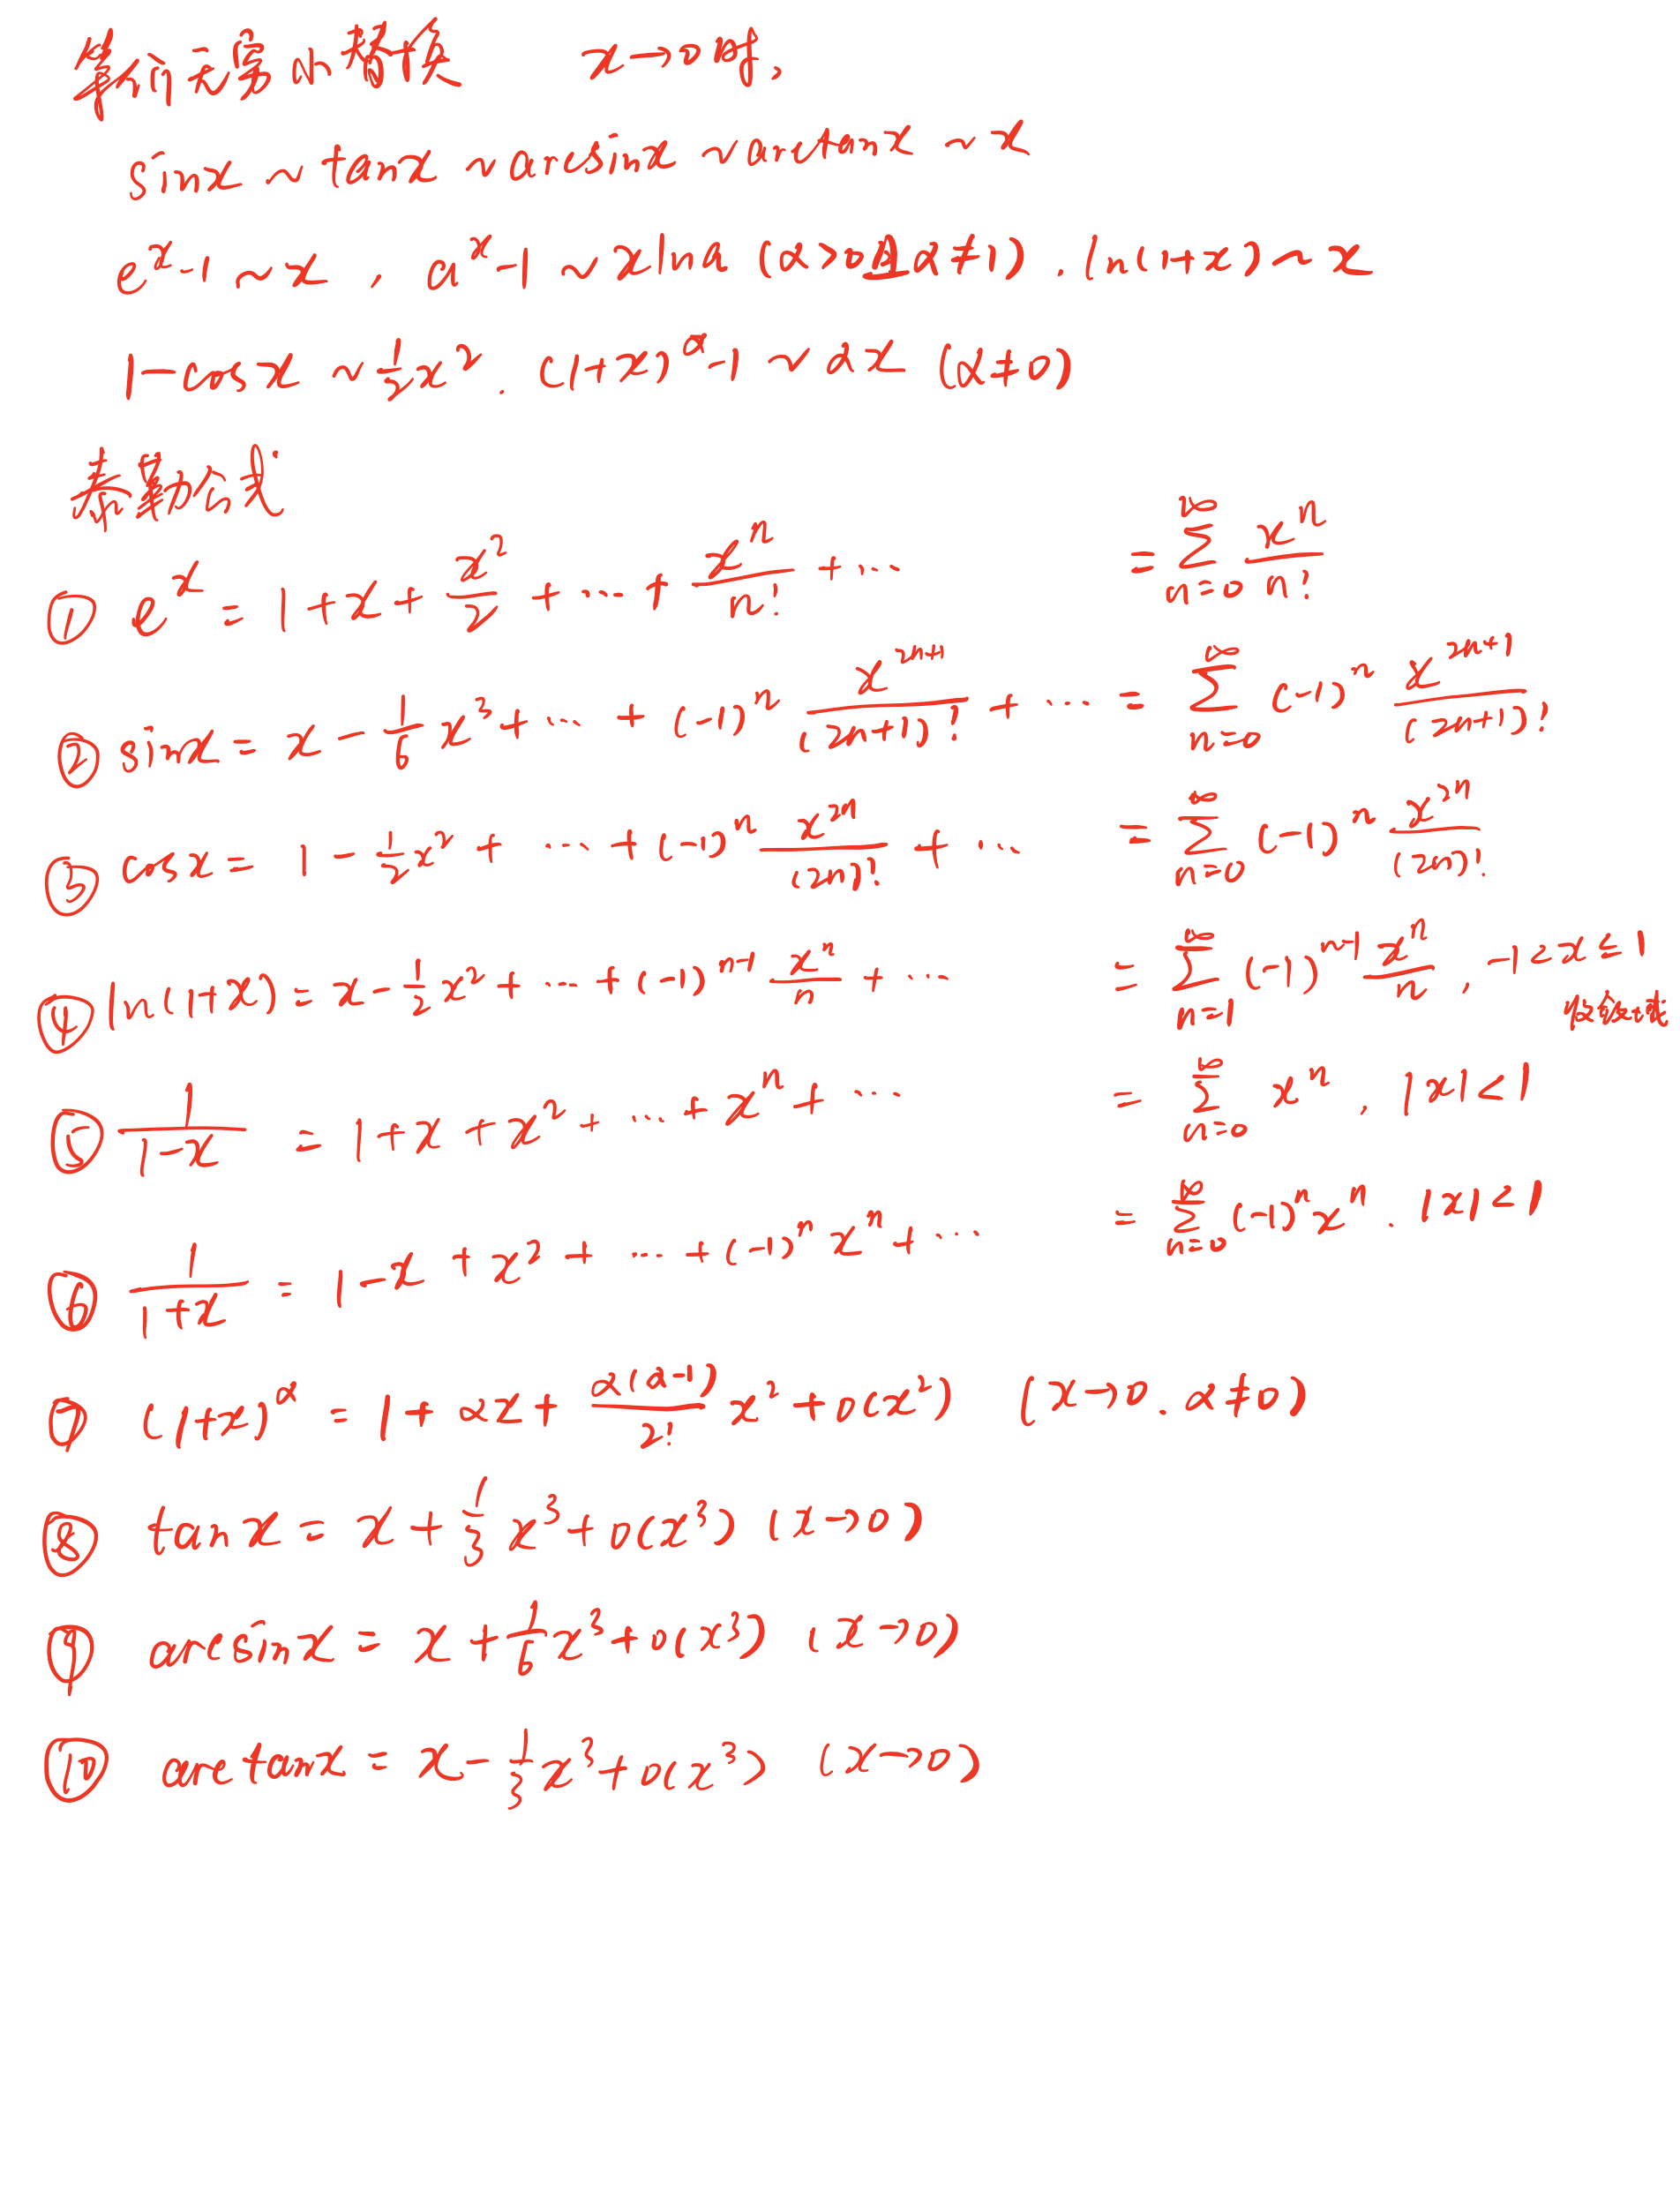 等价无穷小替换 x→0时,
sinx ~ tanx ~ arcsinx ~ arctanx ~ x
e^x-1 ~ x , a^x-1 ~ xlna (a>0且a≠1) . ln(1+x) ~ x
1-cosx ~ 1/2 x^2 . (1+x)^α-1 ~ αx (α≠0)
泰勒公式
① e^x = 1+x+x^2/2 + … + x^n/n! + … = ∑_{n=0}^∞ x^n/n!
② sinx = x - 1/6 x^3 + … + (-1)^n x^{2n+1}/(2n+1)! + … = ∑_{n=0}^∞ (-1)^n x^{2n+1}/(2n+1)!
③ cosx = 1 - 1/2 x^2 + … + (-1)^n x^{2n}/(2n)! + … = ∑_{n=0}^∞ (-1)^n x^{2n}/(2n)!
④ ln(1+x) = x - 1/2 x^2 + … + (-1)^{n-1} x^n/n + … = ∑_{n=1}^∞ (-1)^{n-1} x^n/n , -1<x≤1
收敛域
⑤ 1/(1-x) = 1+x+x^2+ … + x^n + … = ∑_{n=0}^∞ x^n , |x|<1
⑥ 1/(1+x) = 1-x+x^2+ … +(-1)^n x^n + … = ∑_{n=0}^∞ (-1)^n x^n . |x|<1
⑦ (1+x)^α = 1+αx+ α(α-1)/2! x^2+o(x^2) (x→0. α≠0)
⑧ tanx = x + 1/3 x^3+o(x^3) (x→0)
⑨ arcsinx = x + 1/6 x^3+o(x^3) (x→0)
⑩ arctanx = x - 1/3 x^3+o(x^3) (x→0)